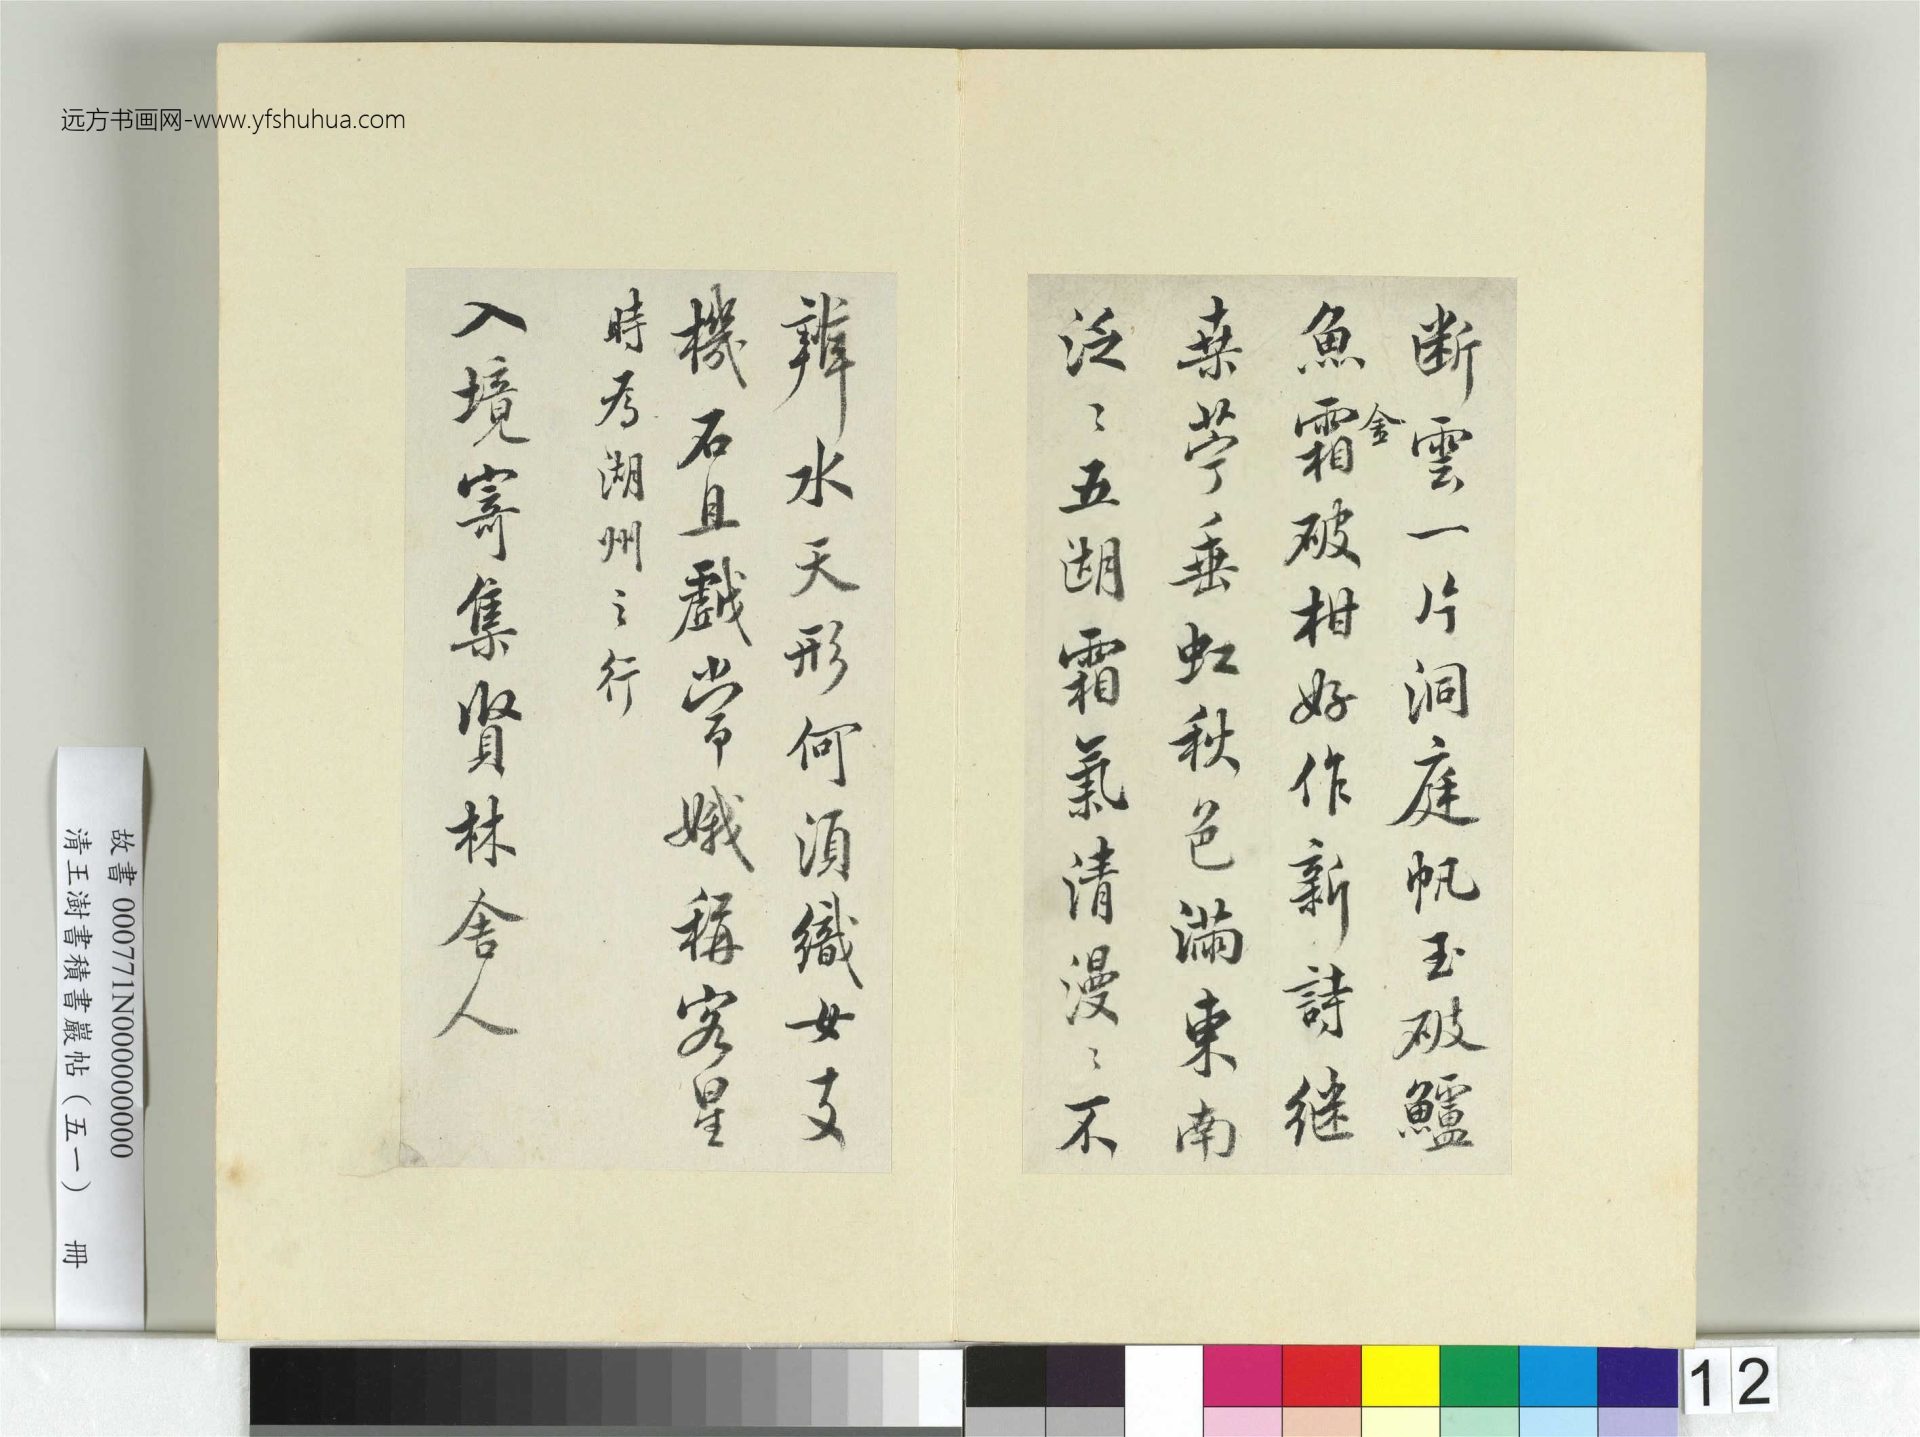 断雲一片洞庭帆玉破鱸
魚霜破柑好作新詩继
金
桒苧垂虹秋色満東南
泛〻五湖霜氣清漫〻不
辨水天形何須織女支
機石且戲常娥稱客星
時為湖州之行
入境寄集賢林舍人
远方书画网-www.yfshuhua.com
故書 000771N000000000
清王澍書積書巖帖（五一） 冊
12